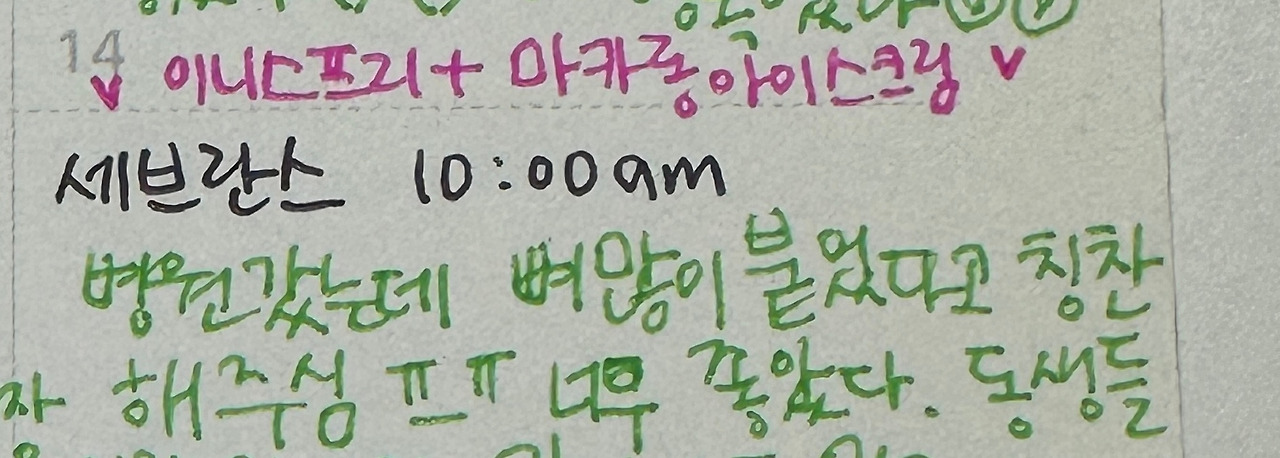 14
이니스프리 + 마카롱 아이스크림
세브란스 10:00am
병원갔는데 뼈많이 붙었다고 칭찬
해주심 ㅠㅠ 너무 좋았다. 동생들